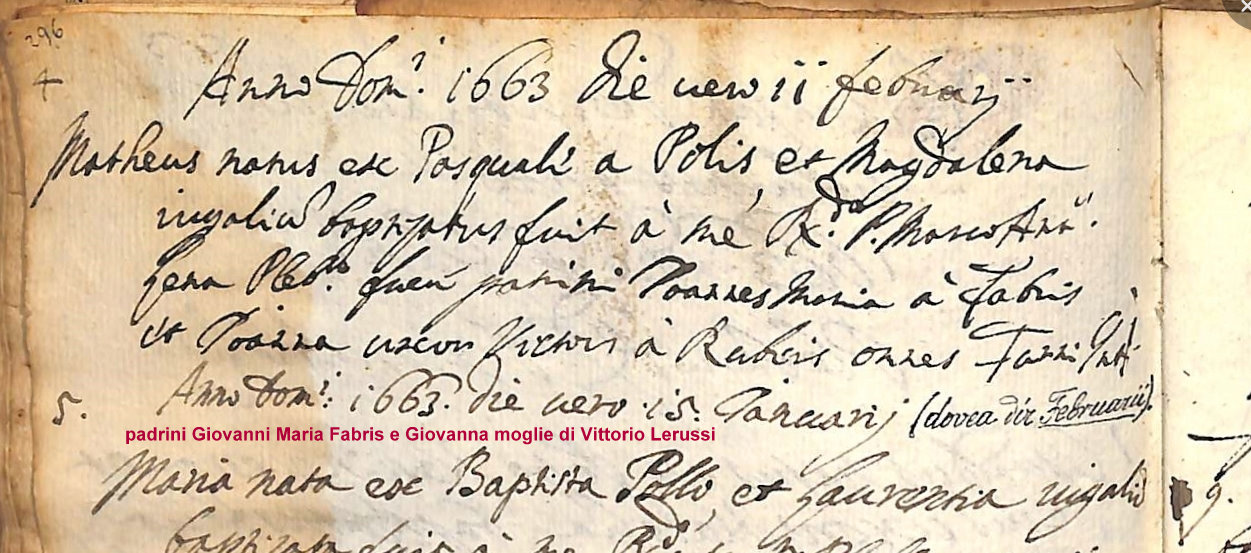 296
4
Anno Dom.i 1663 die uero ii februarij
Matheus natus ex Pasquali a Polis, et Magdalena
iugaliū baptizatus fuit à me R.do P. Marco Ant.
Pleb.o fueū patrini Joannes Maria à Fabris
et Joanna uxor Victoris à Rubeis omnes
5. Anno Dom.i: 1663. die uero .15. Januarij (dovea dir Februarii).
padrini Giovanni Maria Fabris e Giovanna moglie di Vittorio Lerussi
Maria nata ex Baptista Pollo, et Laurentia iugaliū
9.
baptizata fuit à me R.do